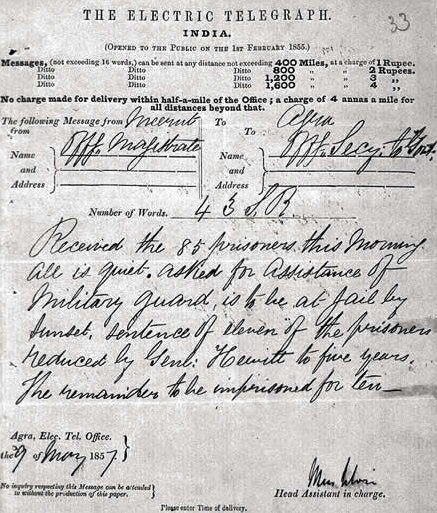 33
THE ELECTRIC TELEGRAPH.
INDIA.
(OPENED TO THE PUBLIC ON THE 1ST FEBRUARY 1855.)
Messages, (not exceeding 16 words,) can be sent at any distance not exceeding 400 Miles, at a charge of 1 Rupee.
Ditto Ditto Ditto 800 „ „ 2 Rupees.
Ditto Ditto Ditto 1,200 „ „ 3 „
Ditto Ditto Ditto 1,600 „ „ 4 „
No charge made for delivery within half-a-mile of the Office; a charge of 4 annas a mile for
all distances beyond that.
The following Message from Meerut To Agra
from Offg. Magistrate To Offg. Secy. to Govt.
Name Name
and and
Address Address
Number of Words. 43 S,R
Received the 85 prisoners this Morning
all is quiet. asked for Assistance of
Military guard, is to be at jail by
Sunset, sentence of eleven of the prisoners
reduced by Genl: Hewitt to five years.
The remainder to be imprisoned for ten—
Agra, Elec. Tel. Office.
the 9 of May 1857
No inquiry respecting this Message can be attended
to without the production of this paper.
Head Assistant in charge.
Please enter Time of delivery.